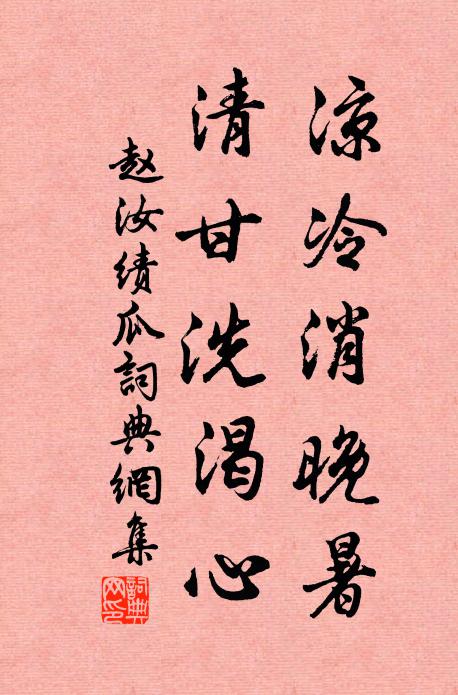 凉冷消晚暑
清甘洗渴心
赵汝绩瓜詞典網集
詞典